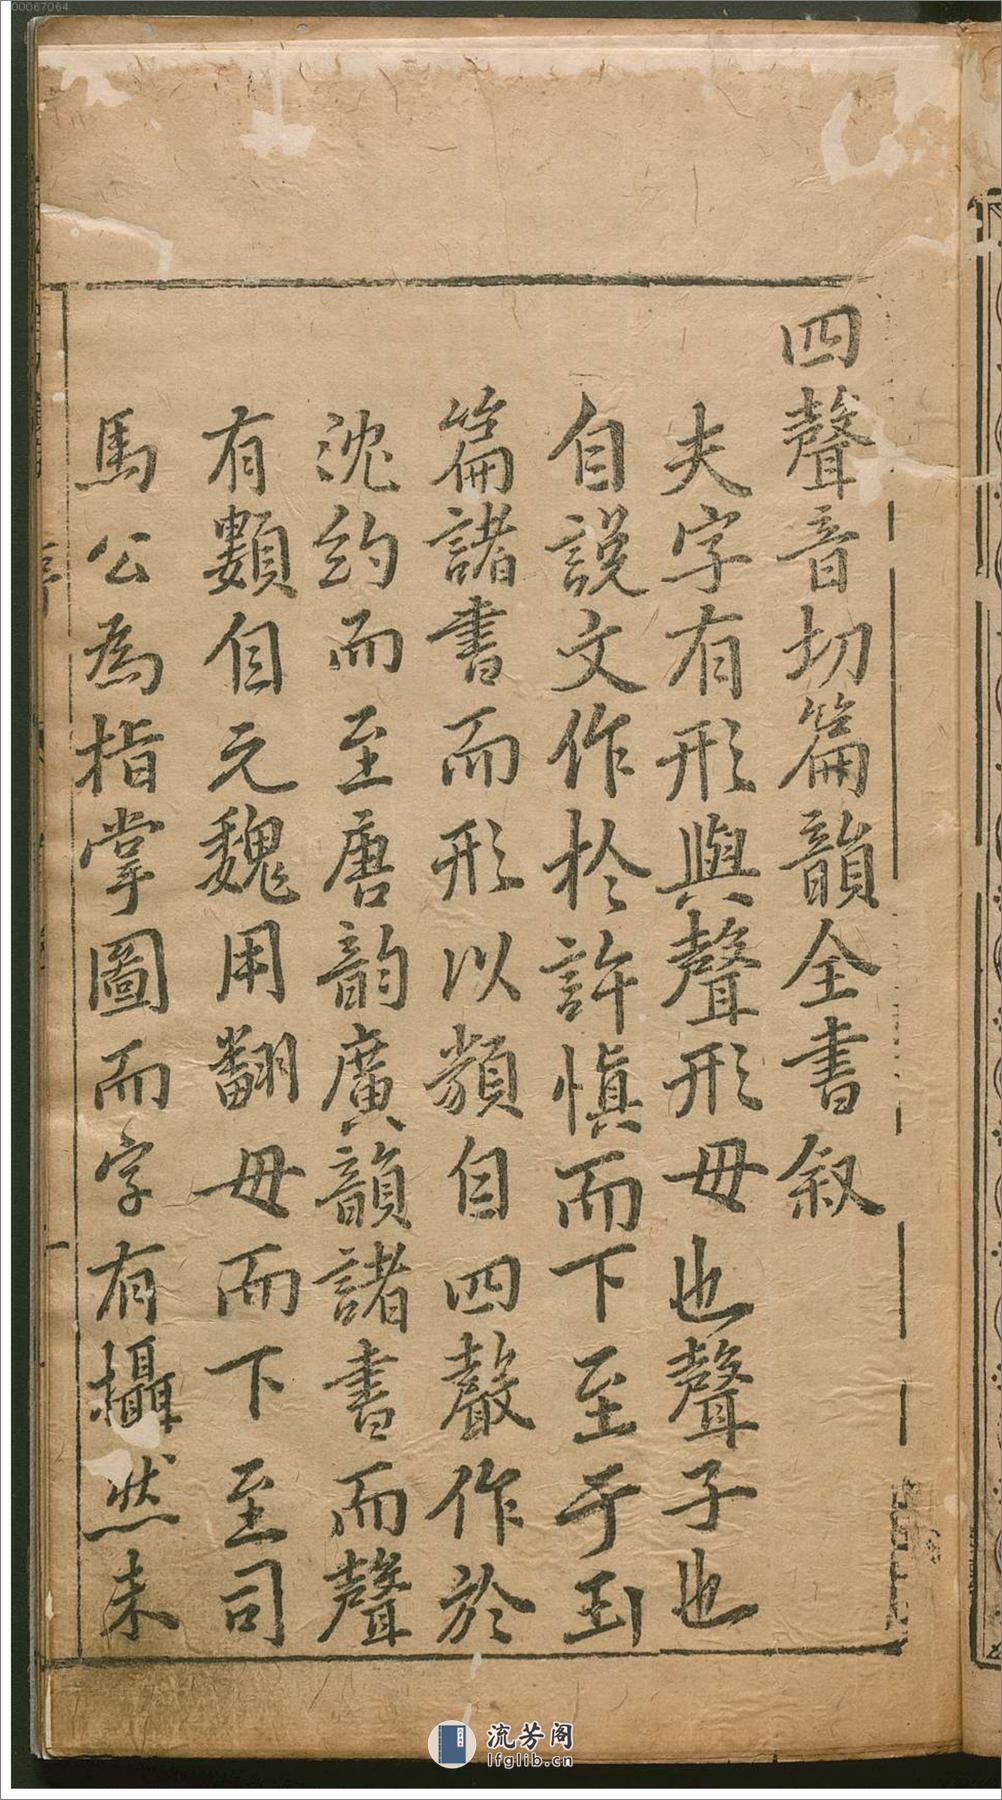 00067064
四聲音切篇韻全書叙
夫字有形與聲形母也聲子也
自説文作於許慎而下至于玉
篇諸書而形以類自四聲作於
沈約而至唐韵廣韻諸書而聲
有類自元魏用翻母而下至司
馬公為指掌圖而字有攝然未
序
一
流芳阁
lfglib.cn